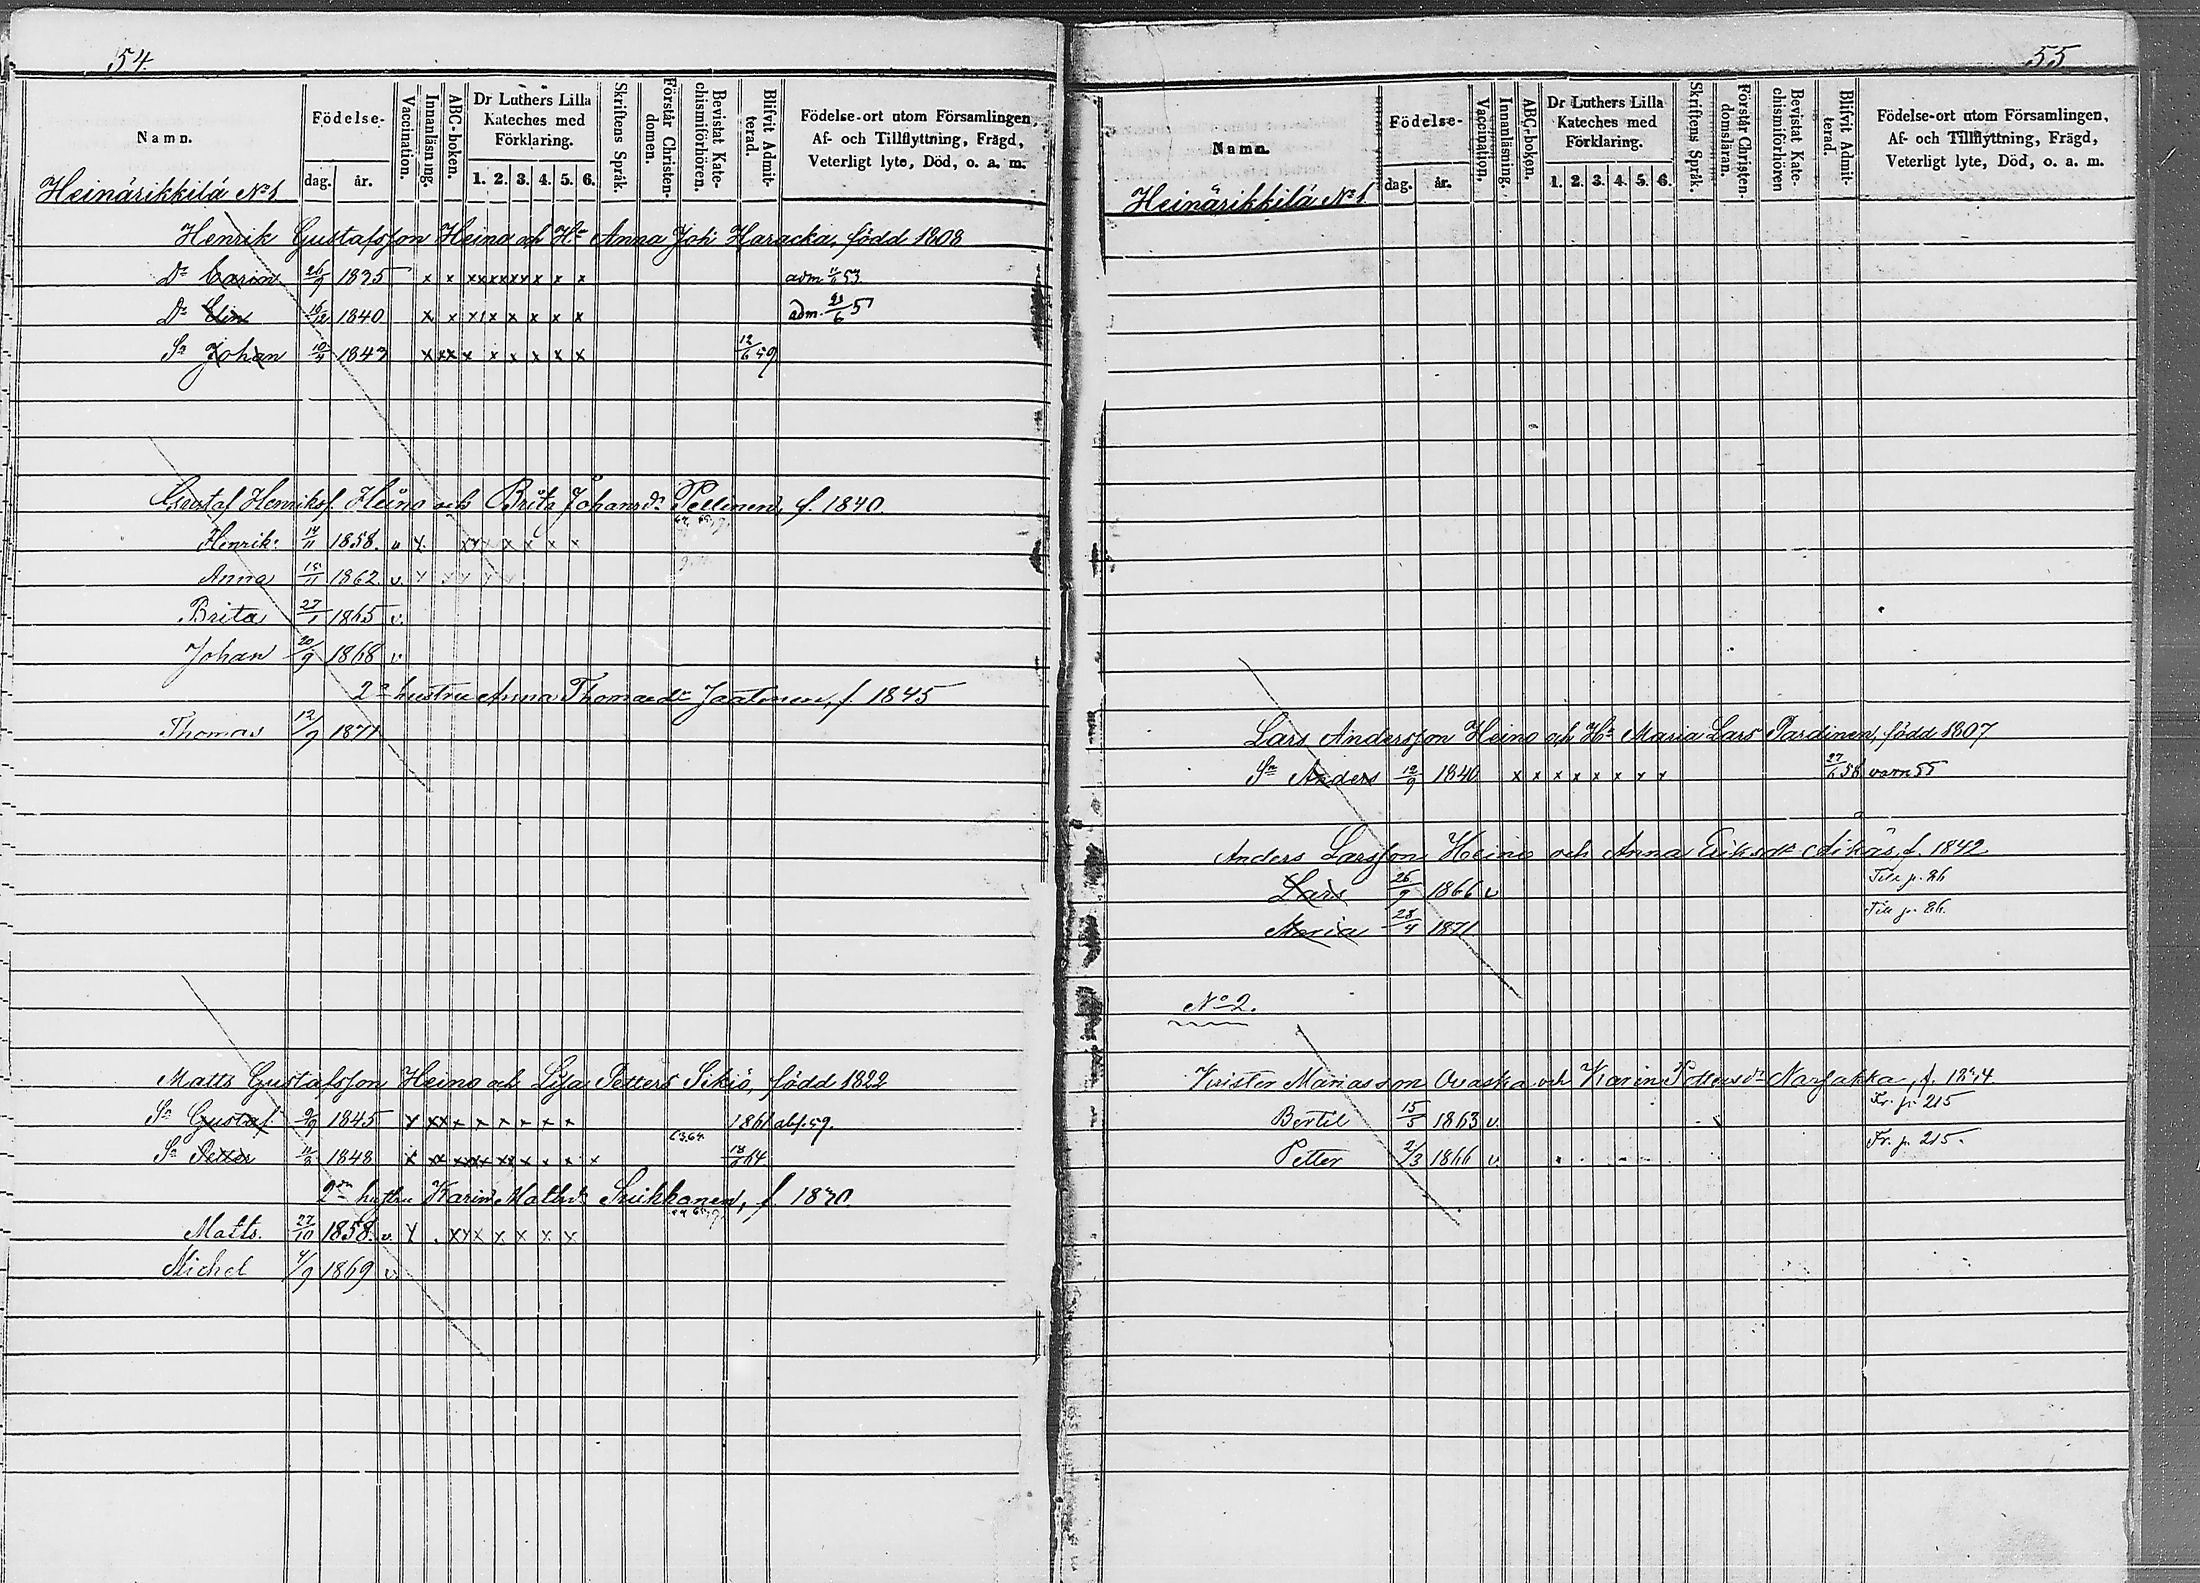 54.
Namn.
Födelse-
dag.
år.
Vaccination.
Innanläsning.
ABC-boken.
Dr Luthers Lilla
Kateches med
Förklaring.
1. 2. 3. 4. 5. 6.
Skriftens Språk.
Förstår Christen-
domen.
Bevistat Kate-
chismiförhören.
Blifvit Admit-
terad.
Födelse-ort utom Församlingen,
Af- och Tillflyttning, Frägd,
Veterligt lyte, Död, o. a. m.
Heinärikkilä No 1
Henrik Gustafsson Heino och Hu Anna Joh: Haracka, född 1808
Dr Carin 26/9 1835 x x x x x x x x x x adm 53.
Dr Elin 1840 x x x x x x x x adm. 21/6 57
Sn Johan 1843 x x x x x x x x x 12/6 59
Gustaf Henrikss. Heino och Brita Johansdr Pellinen, f. 1840.
Henrik 14/11 1858. v x x x x x x x x
Anna 15/11 1862. v x x x x x
Brita 27/1 1865 v.
Johan 20/9 1868 v
2a hustru Anna Thomasdr Jaatinen, f. 1845
Thomas 12/9 1871
Matts Gustafsson Heino och Lisa Petters Sikiö, född 1822
Sn Gustaf 9/9 1845 x x x x x x x x x 1861 abs. 59.
Sn Petter 11/3 1848 x x x x x x x x x x x x 64
2a hustru Karin Mattsdr Suikkanen, f. 1830.
Matts. 27/10 1858. v. x . x x x x x x x
Michel 4/9 1869 v
55
Namn.
Födelse-
dag.
år.
Vaccination.
Innanläsning.
ABC-boken.
Dr Luthers Lilla
Kateches med
Förklaring.
1. 2. 3. 4. 5. 6.
Skriftens Språk.
Förstår Christen-
domsläran.
Bevistat Kate-
chismiförhören
Blifvit Admit-
terad.
Födelse-ort utom Församlingen,
Af- och Tillflyttning, Frägd,
Veterligt lyte, Död, o. a. m.
Heinärikkilä No 1
Lars Andersson Heino och Hu Maria Lars Pardinen, född 1807
Sn Anders 12/9 1840 x x x x x x x x 27/6 58 varn 55
Anders Larsson Heino och Anna Eriksdr Äikäs, f. 1842
Lars 26/9 1866 v Till p. 86
Maria 28/4 1871 Till p. 86.
No 2.
Krister Mariasson Ovaska och Karin Pettersdr Narsakka, f.
Bertil 15/5 1863 v. Fr. p. 215
Petter 2/3 1866 v Fr. p. 215.